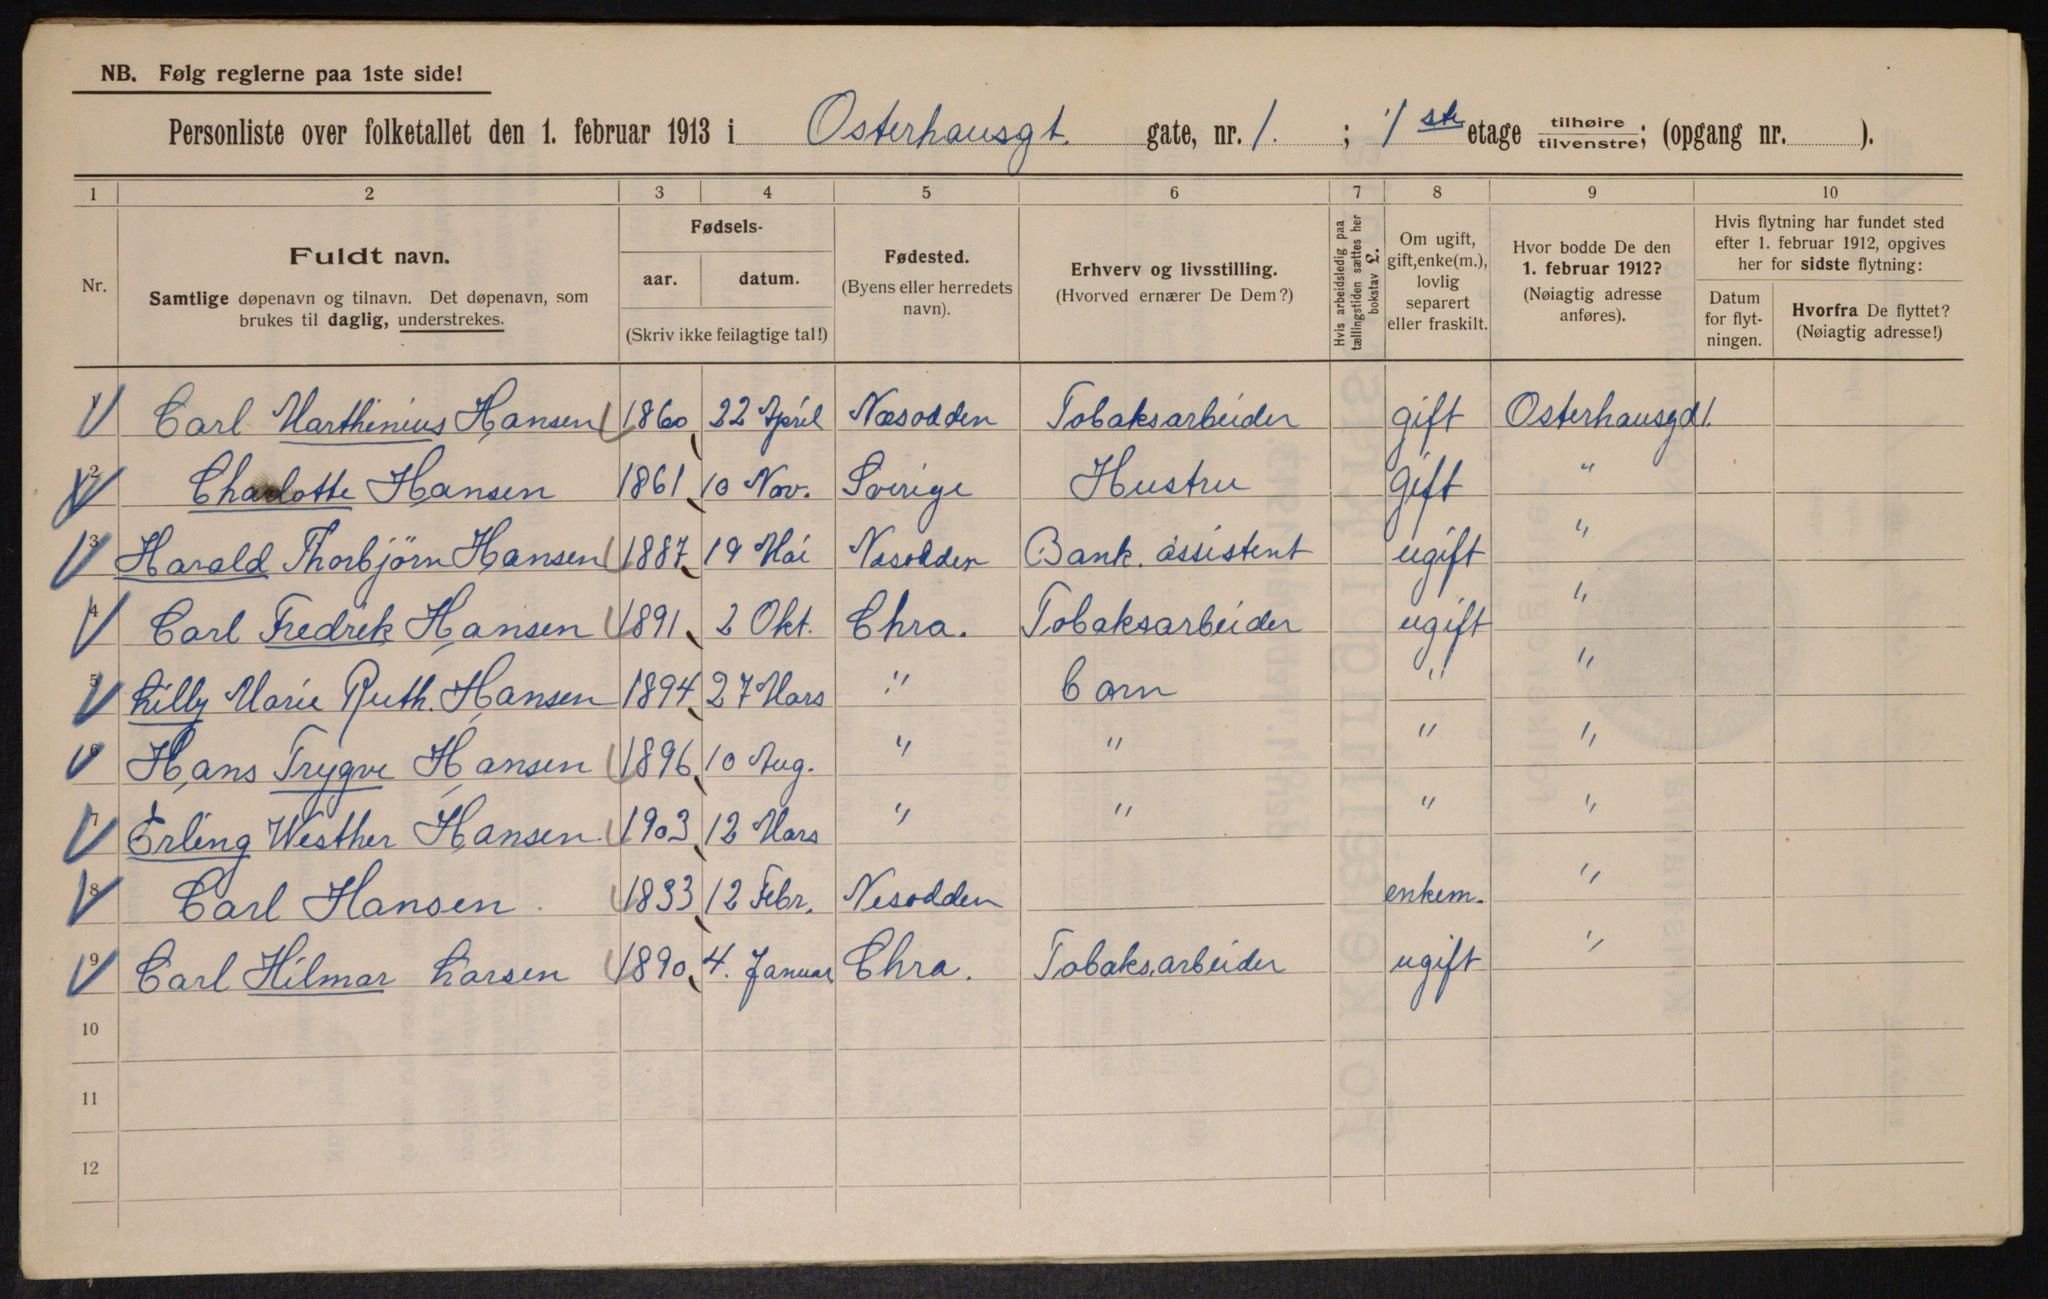 NB. Følg reglerne paa 1ste side!
Personliste over folketallet den 1. februar 1913 i Osterhausgt. gate, nr. 1. ; 1 ste etage tilhøire tilvenstre; (opgang nr. ).
1 2 3 4 5 6 7 8 9 10
Nr.
Fuldt navn.
Samtlige døpenavn og tilnavn. Det døpenavn, som
brukes til daglig, understrekes.
Fødsels-
aar. datum.
(Skriv ikke feilagtige tal!)
Fødested.
(Byens eller herredets
navn).
Erhverv og livsstilling.
(Hvorved ernærer De Dem?)
Hvis arbeidsledig paa
tællingstiden sættes her
bokstav £.
Om ugift,
gift, enke(m.),
lovlig
separert
eller fraskilt.
Hvor bodde De den
1. februar 1912?
(Nøiagtig adresse
anføres).
Hvis flytning har fundet sted
efter 1. februar 1912, opgives
her for sidste flytning:
Datum
for flyt-
ningen.
Hvorfra De flyttet?
(Nøiagtig adresse!)
1 Carl Marthinius Hansen 1860 22 April Næsodden Tobaksarbeider gift Osterhausgd 1.
2 Charlotte Hansen 1861 10 Nov. Sverige Hustru gift "
3 Harald Thorbjørn Hansen 1887 19 Mai Nesodden Bank. assistent ugift "
4 Carl Fredrik Hansen 1891 2 Okt. Chra. Tobaksarbeider ugift "
5 Lilly Marie Ruth. Hansen 1894 27 Mars " barn " "
6 Hans Trygve Hansen 1896 10 Aug. " " " "
7 Erling Westher Hansen 1903 12 Mars " " " "
8 Carl Hansen 1833 12 Febr. Nesodden enkem. "
9 Carl Hilmar Larsen 1890 4. Januar Chra. Tobaksarbeider ugift "
10
11
12